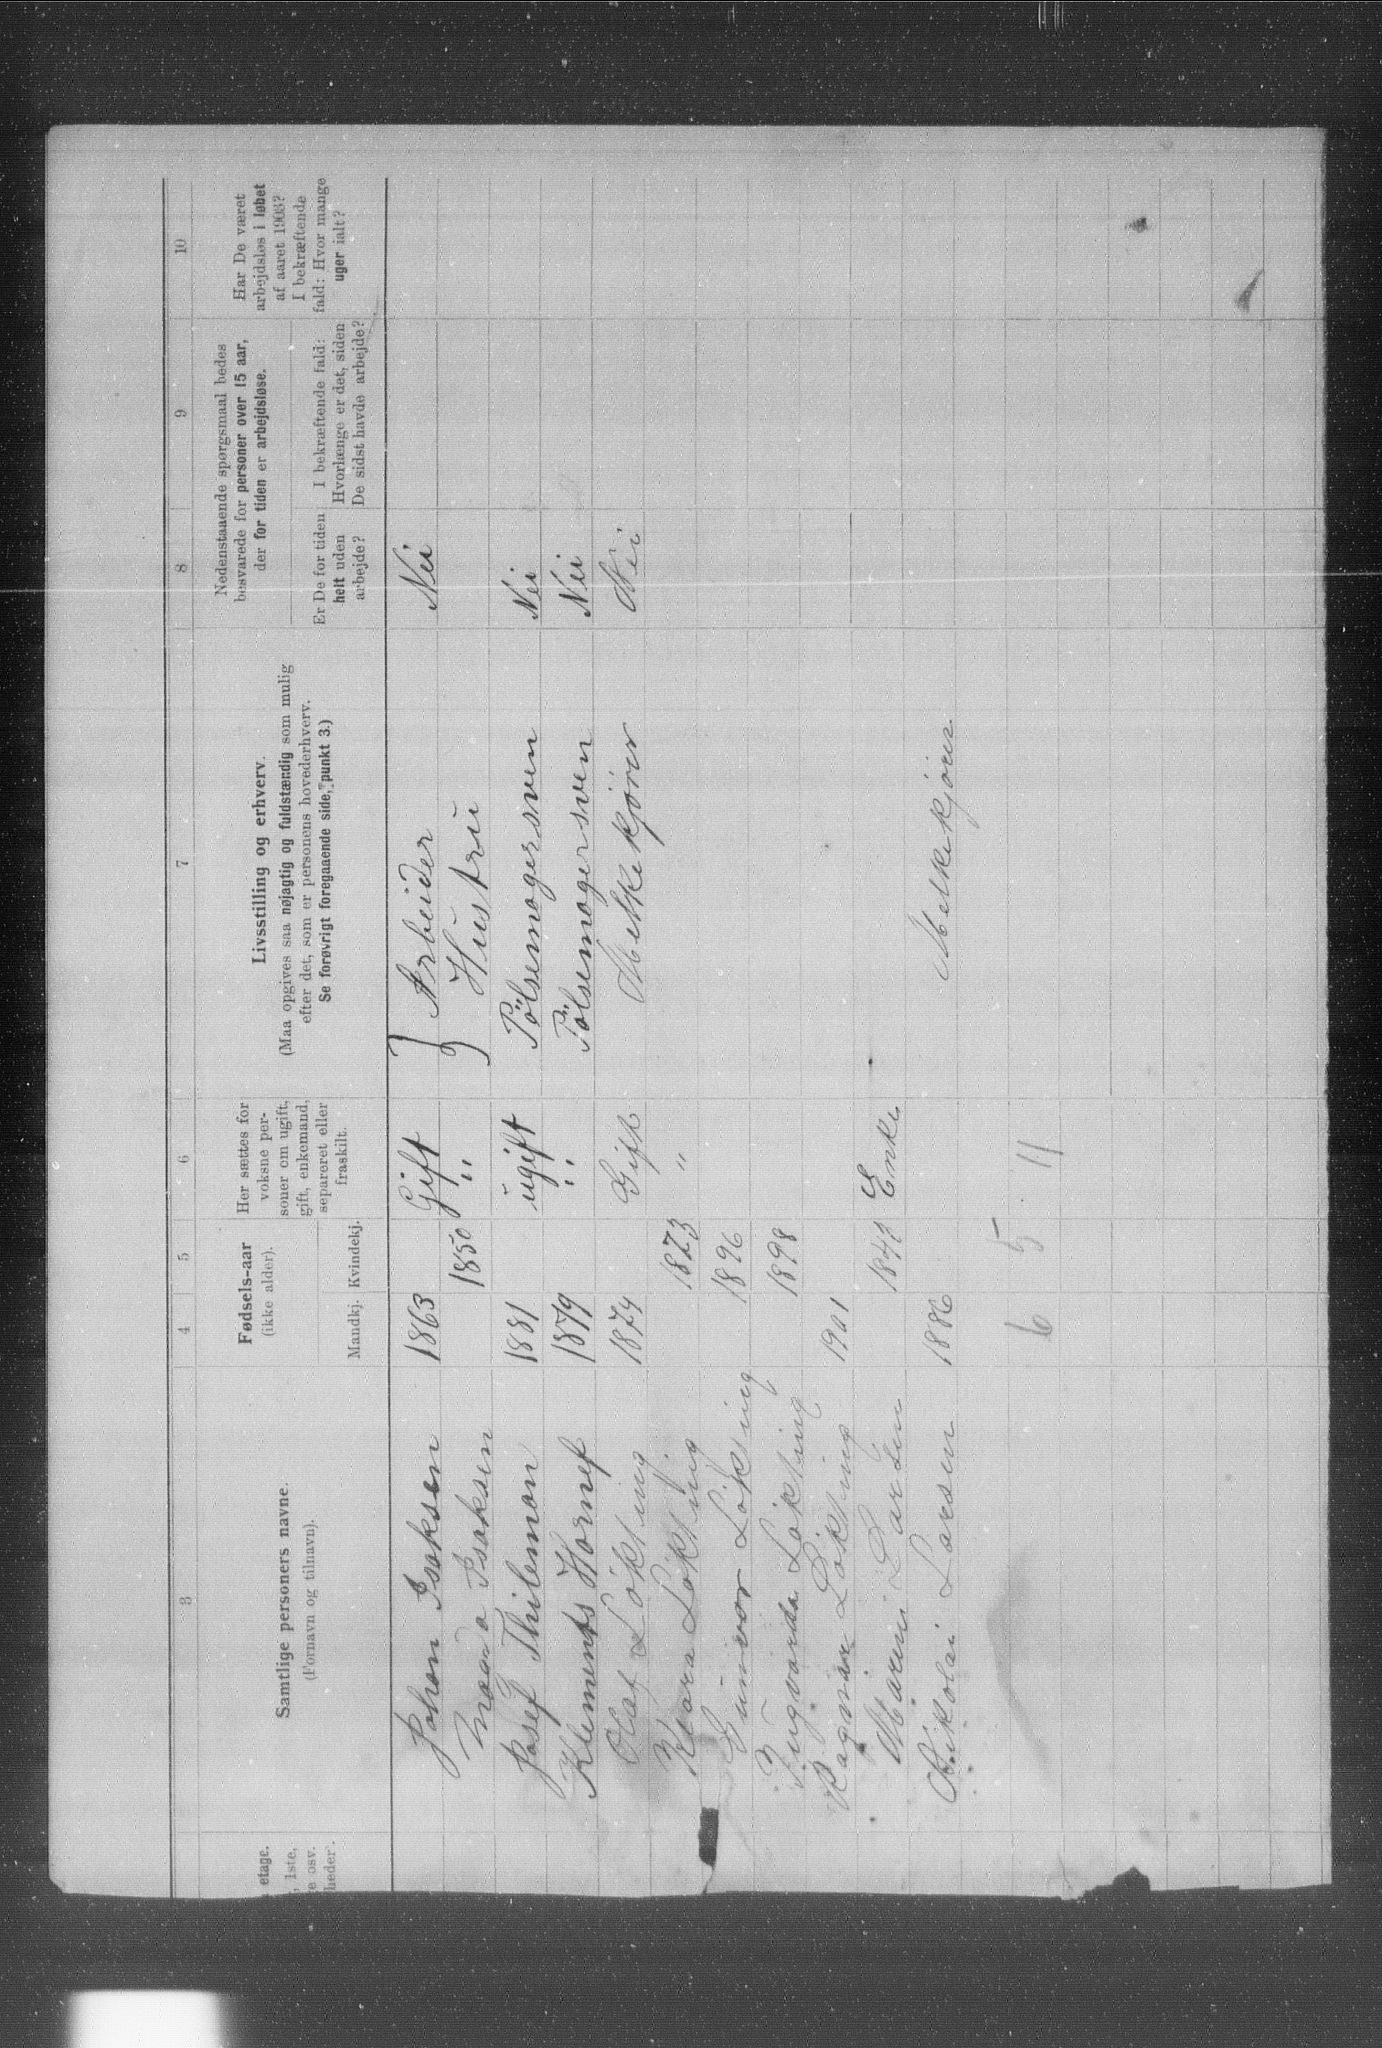 3 4 5 6 7 8 9 10
etage.
, 1ste,
e osv.
heder.
Samtlige personers navne.
(Fornavn og tilnavn).
Fødsels-aar
(ikke alder).
Mandkj. Kvindekj.
Her sættes for
voksne per-
soner om ugift,
gift, enkemand,
separeret eller
fraskilt.
Livsstilling og erhverv.
(Maa opgives saa nøjagtig og fuldstændig som mulig
efter det, som er personens hovederhverv.
Se forøvrigt foregaaende side, punkt 3.)
Nedenstaaende spørgsmaal bedes
besvarede for personer over 15 aar,
der for tiden er arbejdsløse.
Er De for tiden
helt uden
arbejde?
I bekræftende fald:
Hvorlænge er det, siden
De sidst havde arbejde?
Har De været
arbejdsløs i løbet
af aaret 1903?
I bekræftende
fald: Hvor mange
uger ialt?
Johan Isaksen 1863 Gift } Arbeider Nei
Isaksen 1850 " Hustru
Josef Thileman 1881 ugift Pölsemagersven Nei
Klements Hornef 1879 " Pölsemagersven Nei
Olaf Løkting 1874 Gift Melkekjører Nei
Klara Løkting 1873 "
Gunvor Løkting 1896
Ingvarda Løkting 1898
Ragnar Løkting 1901
Marin Larsen Enke
Nikolai Larsen 1886 Melkekjører
6 5 11